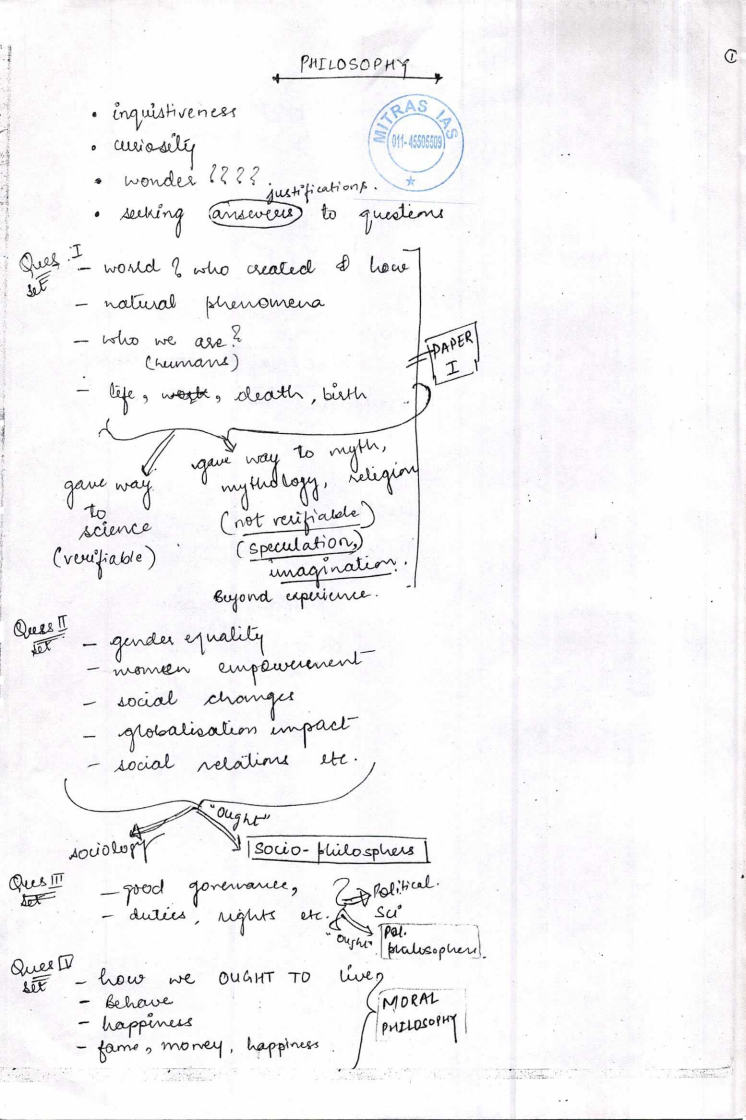 ①
PHILOSOPHY
• inquistiveness
• curiosity
• wonder ????
justifications.
• seeking answers to questions
MITRAS IAS
011-45505509
Ques. I set
- world ? who created & how
- natural phenomena
- who we are?
(humans)
- life, work, death, birth
PAPER I
gave way to science (verifiable)
gave way to myth, mythology, religion
(not verifiable)
(speculation,)
imagination.
Beyond experience.
Ques II set
- gender equality
- women empowerement
- social changes
- globalisation impact
- social relations etc.
"Ought"
sociology
Socio-philosphers
Ques III set
- good governance,
- duties, rights etc.
Political. Sci
"Ought"
Pol. philosophers
Ques IV set
- how we OUGHT TO live
- Behave
- happiness
- fame, money, happiness
MORAL PHILOSOPHY